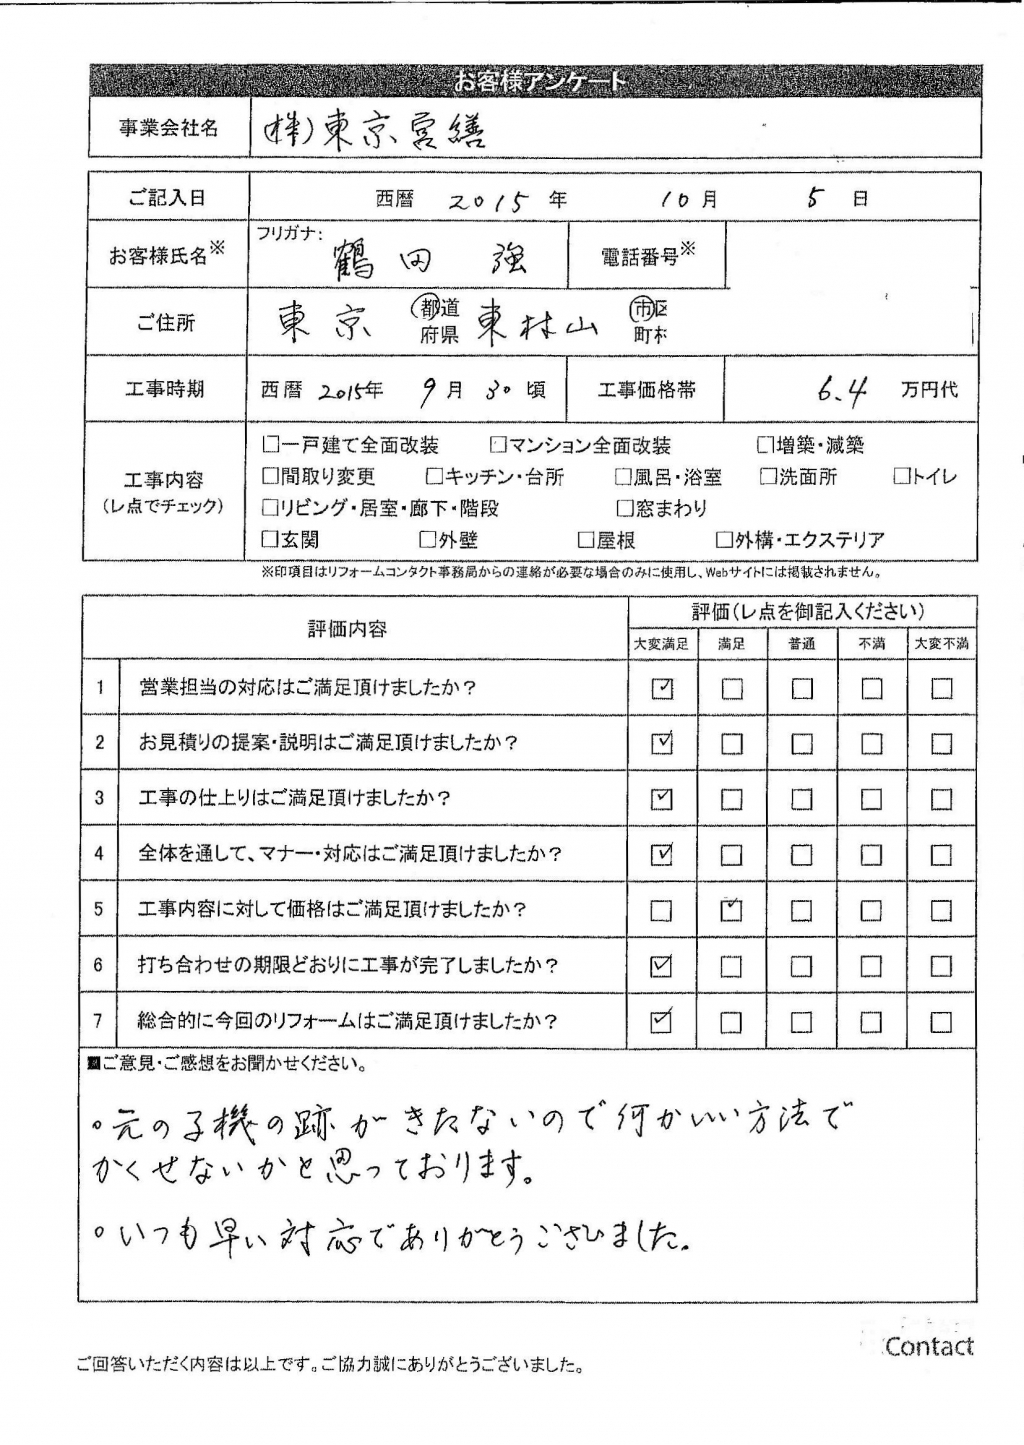 お客様アンケート
事業会社名 (株)東京営繕
ご記入日 西暦 2015 年 10 月 5 日
フリガナ:
お客様氏名※ 鶴田 強 電話番号※
ご住所 東京 都道府県 東村山 市区町村
工事時期 西暦 2015年 9月 30頃 工事価格帯 6.4 万円代
□一戸建て全面改装 □マンション全面改装 □増築・減築
工事内容 □間取り変更 □キッチン・台所 □風呂・浴室 □洗面所 □トイレ
(レ点でチェック) □リビング・居室・廊下・階段 □窓まわり
□玄関 □外壁 □屋根 □外構・エクステリア
※印項目はリフォームコンタクト事務局からの連絡が必要な場合のみに使用し、Webサイトには掲載されません。
評価内容 評価(レ点を御記入ください)
大変満足 満足 普通 不満 大変不満
1 営業担当の対応はご満足頂けましたか? ☑ □ □ □ □
2 お見積りの提案・説明はご満足頂けましたか? ☑ □ □ □ □
3 工事の仕上りはご満足頂けましたか? ☑ □ □ □ □
4 全体を通して、マナー・対応はご満足頂けましたか? ☑ □ □ □ □
5 工事内容に対して価格はご満足頂けましたか? □ ☑ □ □ □
6 打ち合わせの期限どおりに工事が完了しましたか? ☑ □ □ □ □
7 総合的に今回のリフォームはご満足頂けましたか? ☑ □ □ □ □
■ご意見・ご感想をお聞かせください。
○元の子機の跡がきたないので何かいい方法で
かくせないかと思っております。
○いつも早い対応でありがとうございました。
Contact
ご回答いただく内容は以上です。ご協力誠にありがとうございました。